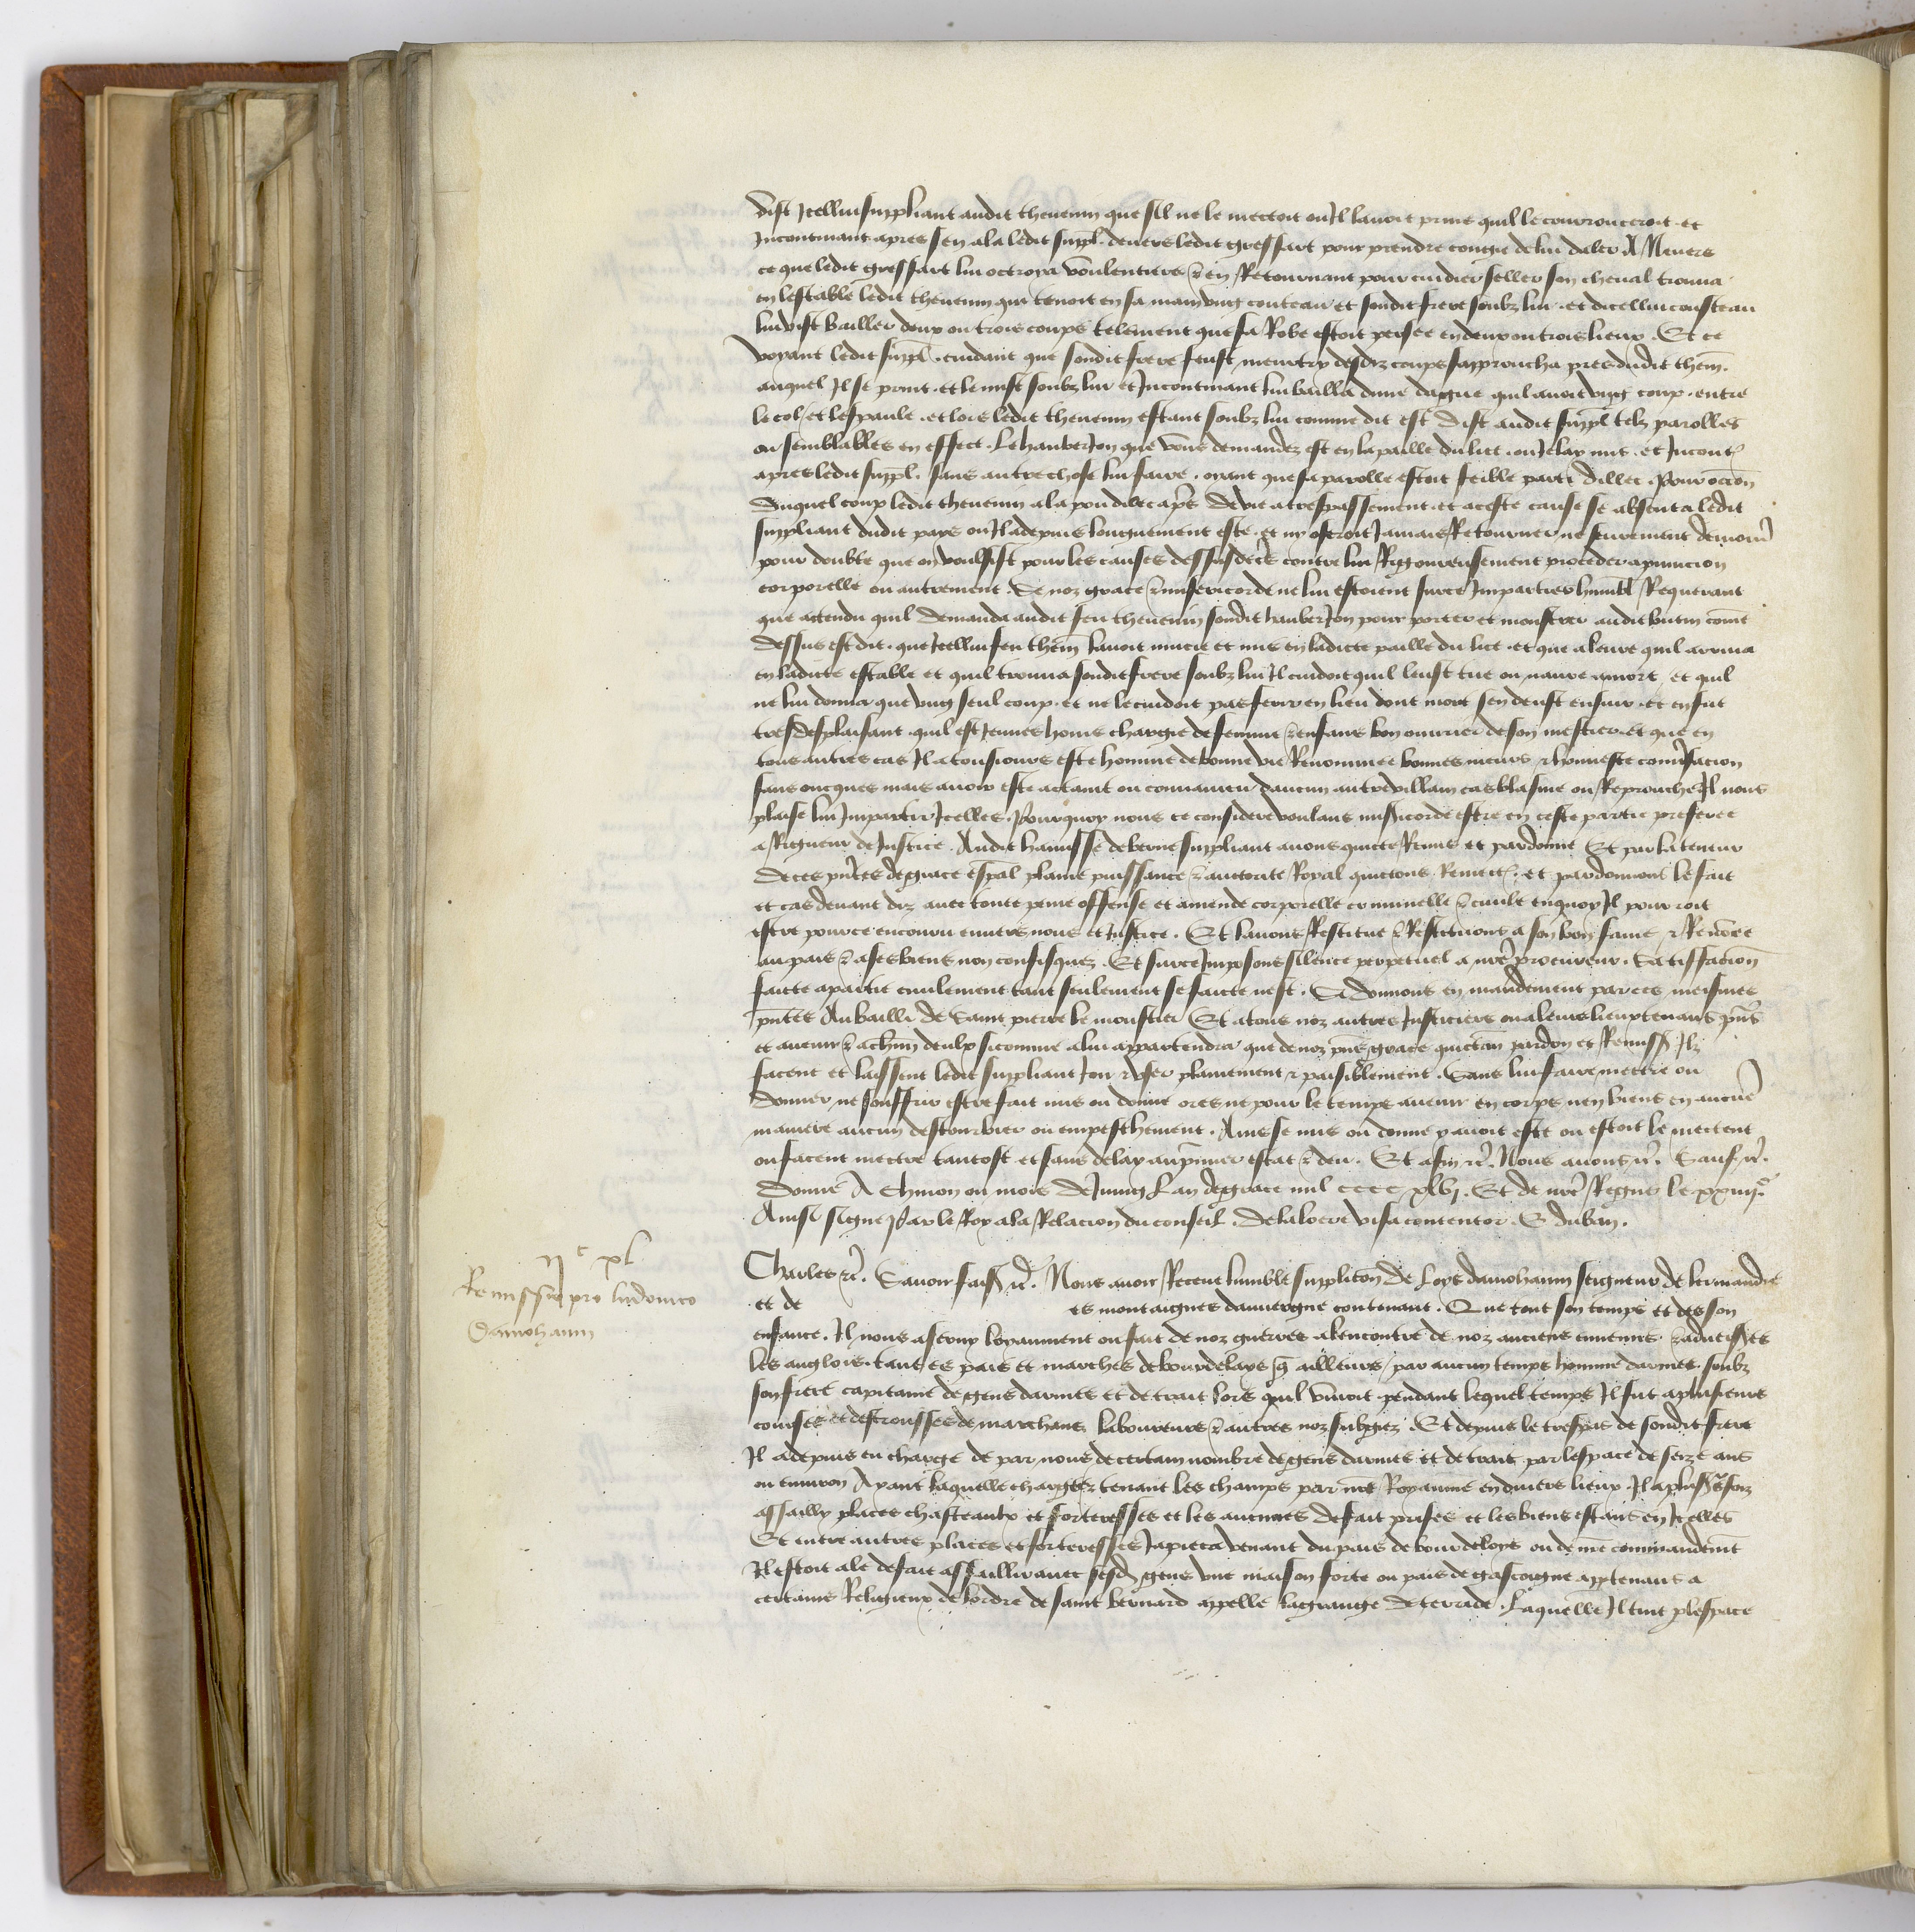 dist icellui suppliant audit thevenin que sil ne le mectoit ou il lavoit prins quil le courrouceroit . et
Incontinant apres sen ala ledit suppl. devers ledit gressart pour prendre congie de lui daler A Nevers
ce que ledit gressart lui octroya voulentiers & en Retournant pour cuidier seller son cheval trouva
en lestable ledit thevenin qui tenoit en sa main ung couteau et sondit frere soubz lui . et dicellui cousteau
lui vist bailler deux ou trois coups telement que sa Robe estoit persee en deux ou trois lieux . Et ce
voyant ledit suppl. cuidant que sondit frere feust meurtry desdiz coups sapproucha pres dudit then.
auquel Il se print . et le mist soubz lui et Incontinant lui bailla dune dague quil avoit ung coup . entre
le col et lespaule . et lors ledit thevenin estant soubz lui comme dit est dist audit suppl telz parolles
ou semblables en effect . Le hauberjon que vous demandez est en la paille du lict . ou Je lay mis . et Incont.
apres ledit suppl. sans autre chose lui faire . oyant que sa parolle estoit feible parti dillec . Pour occon
duquel coup ledit thevenin ala pou dilec apres de vie a trespassement . et a ceste cause se absenta ledit
suppliant dudit pays ou Il a depuis longuement este . et ny oseroit Jamais Retourner ne seurement demour
pour doubte que on voulsist pour les causes dessusdictes contre lui Rigoureusement proceder a punicion
corporelle ou autrement . Se noz grace & misericorde ne lui estoient sur ce Imparties humbl Requerant
que actendu quil demanda audit feu thevenin sondit hauberjon pour porter et monstrer audit butin come
dessus est dit . que Icellui feu then lavoit mucie et mis en ladicte paille du lict . et que a leure quil arriva
en ladicte estable et quil trouva sondit frere soubz lui Il cuidoit quil leust tue ou navre a mort . et quil
ne lui donna que ung seul coup . et ne le cuidoit pas ferir en lieu dont mort sen deust ensuir . et en fut
tresdesplaisant . quil est Jeunes homs chargie de femme & enfans bon ouvrier de son mestier . et que en
tous autres cas Il a tousiours este homme de bonne vie Renommee bonnes meurs & honneste conversacion
sans oncques mais avoir este actaint ou convaincu daucun autre villain cas blasme ou Reprouche Il nous
plaise lui Impartir Icelles . Pourquoy nous ce considere voulans misericorde estre en ceste partie preferee
a Rigueur de Justice . Audit hanisse de berne suppliant avons quicte Remis et pardonne Et par la teneur
de ces pntes de grace espal plaine puissance & auctorite Royal quictons Remect. et pardonnons le fait
et cas devant diz avec toute peine offense et amende corporelle criminelle & civile en quoy Il pourroit
estre pour ce encouru envers nous et Justice . Et lavons Restitue & Restituons a son bon fame & Renomee
au pais & a ses biens non confisquez . Et sur ce Imposons silence perpetuel a nre procureur . Satisfacion
faicte a partie civilement tant seulement se faicte nest . Si donnons en mandement par ces meismes
pntes Au bailli de Saint pierre le moustier Et a tous noz autres Justiciers ou a leurs lieuxtenans pns
et avenir & a chun deulx si comme a lui appartendra que de noz pns grace quictan pardon et Remiss Ilz
facent et laissent ledit suppliant Joir & user plainement & paisiblement . Sans lui faire mectre ou
donner ne souffrir estre fait mis ou donne ores ne pour le temps avenir en corps nen biens en aucune
maniere aucun destourbier ou empeschement . Aincs se mis ou donne y avoit este ou estoit le mectent
ou facent mectre tantost et sans delay au premier estat & deu . Et afin &c. Nous avons &c. Sauf &c.
Donne A Chinon ou mois de Juing Lan de grace mil cccc xlvj . Et de nre Regne le xxiiij.e
Ainsi signe Par le Roy a la Relacion du conseil . Delaloere visa contentor . E duban .
ijc xl
Remissio pro ludovico
Damohann
Charles &c. Savoir fais &c. Nous avoir Receue lumble supplicon de Loys damohann seigneur de lermandie
et de es montaignes dauvergne contenant . Que tout son temps et des son
enfance . Il nous a servy loyaument ou fait de noz guerres alencontre de noz anciens ennemis & adversses
les anglois . tant es pais et marches de bourdeloys que ailleurs par aucun temps homme darmes . soubz
son frere capitaine de gens darmes et de trait lors quil vivoit . pendant lequel temps Il fut a plusieurs
courses et destrousses de marchans laboureurs & autres noz subgiez . Et depuis le trespas de sondit frere
Il a depuis eu charge de par nous de certain nombre de gens darmes et de trait par lespace de seize ans
ou environ Ayant laquelle charge & tenant les champs par nre Royaume en divers lieux . Il a pluss foiz
assailly places chasteaulx et forteresses et les aucunes de fait prises et les biens estans en Icelles
Et entre autres places et forteresses Japieca venant du pais de bourdeloys ou de nre commandemt
Il estoit ale de fait assaillir avec sesd gens une maison forte ou pais de gascoigne aptenant a
certains Religieux de lordre de saint bernard appelle lagrange de terrade . Laquelle Il tint p lespace